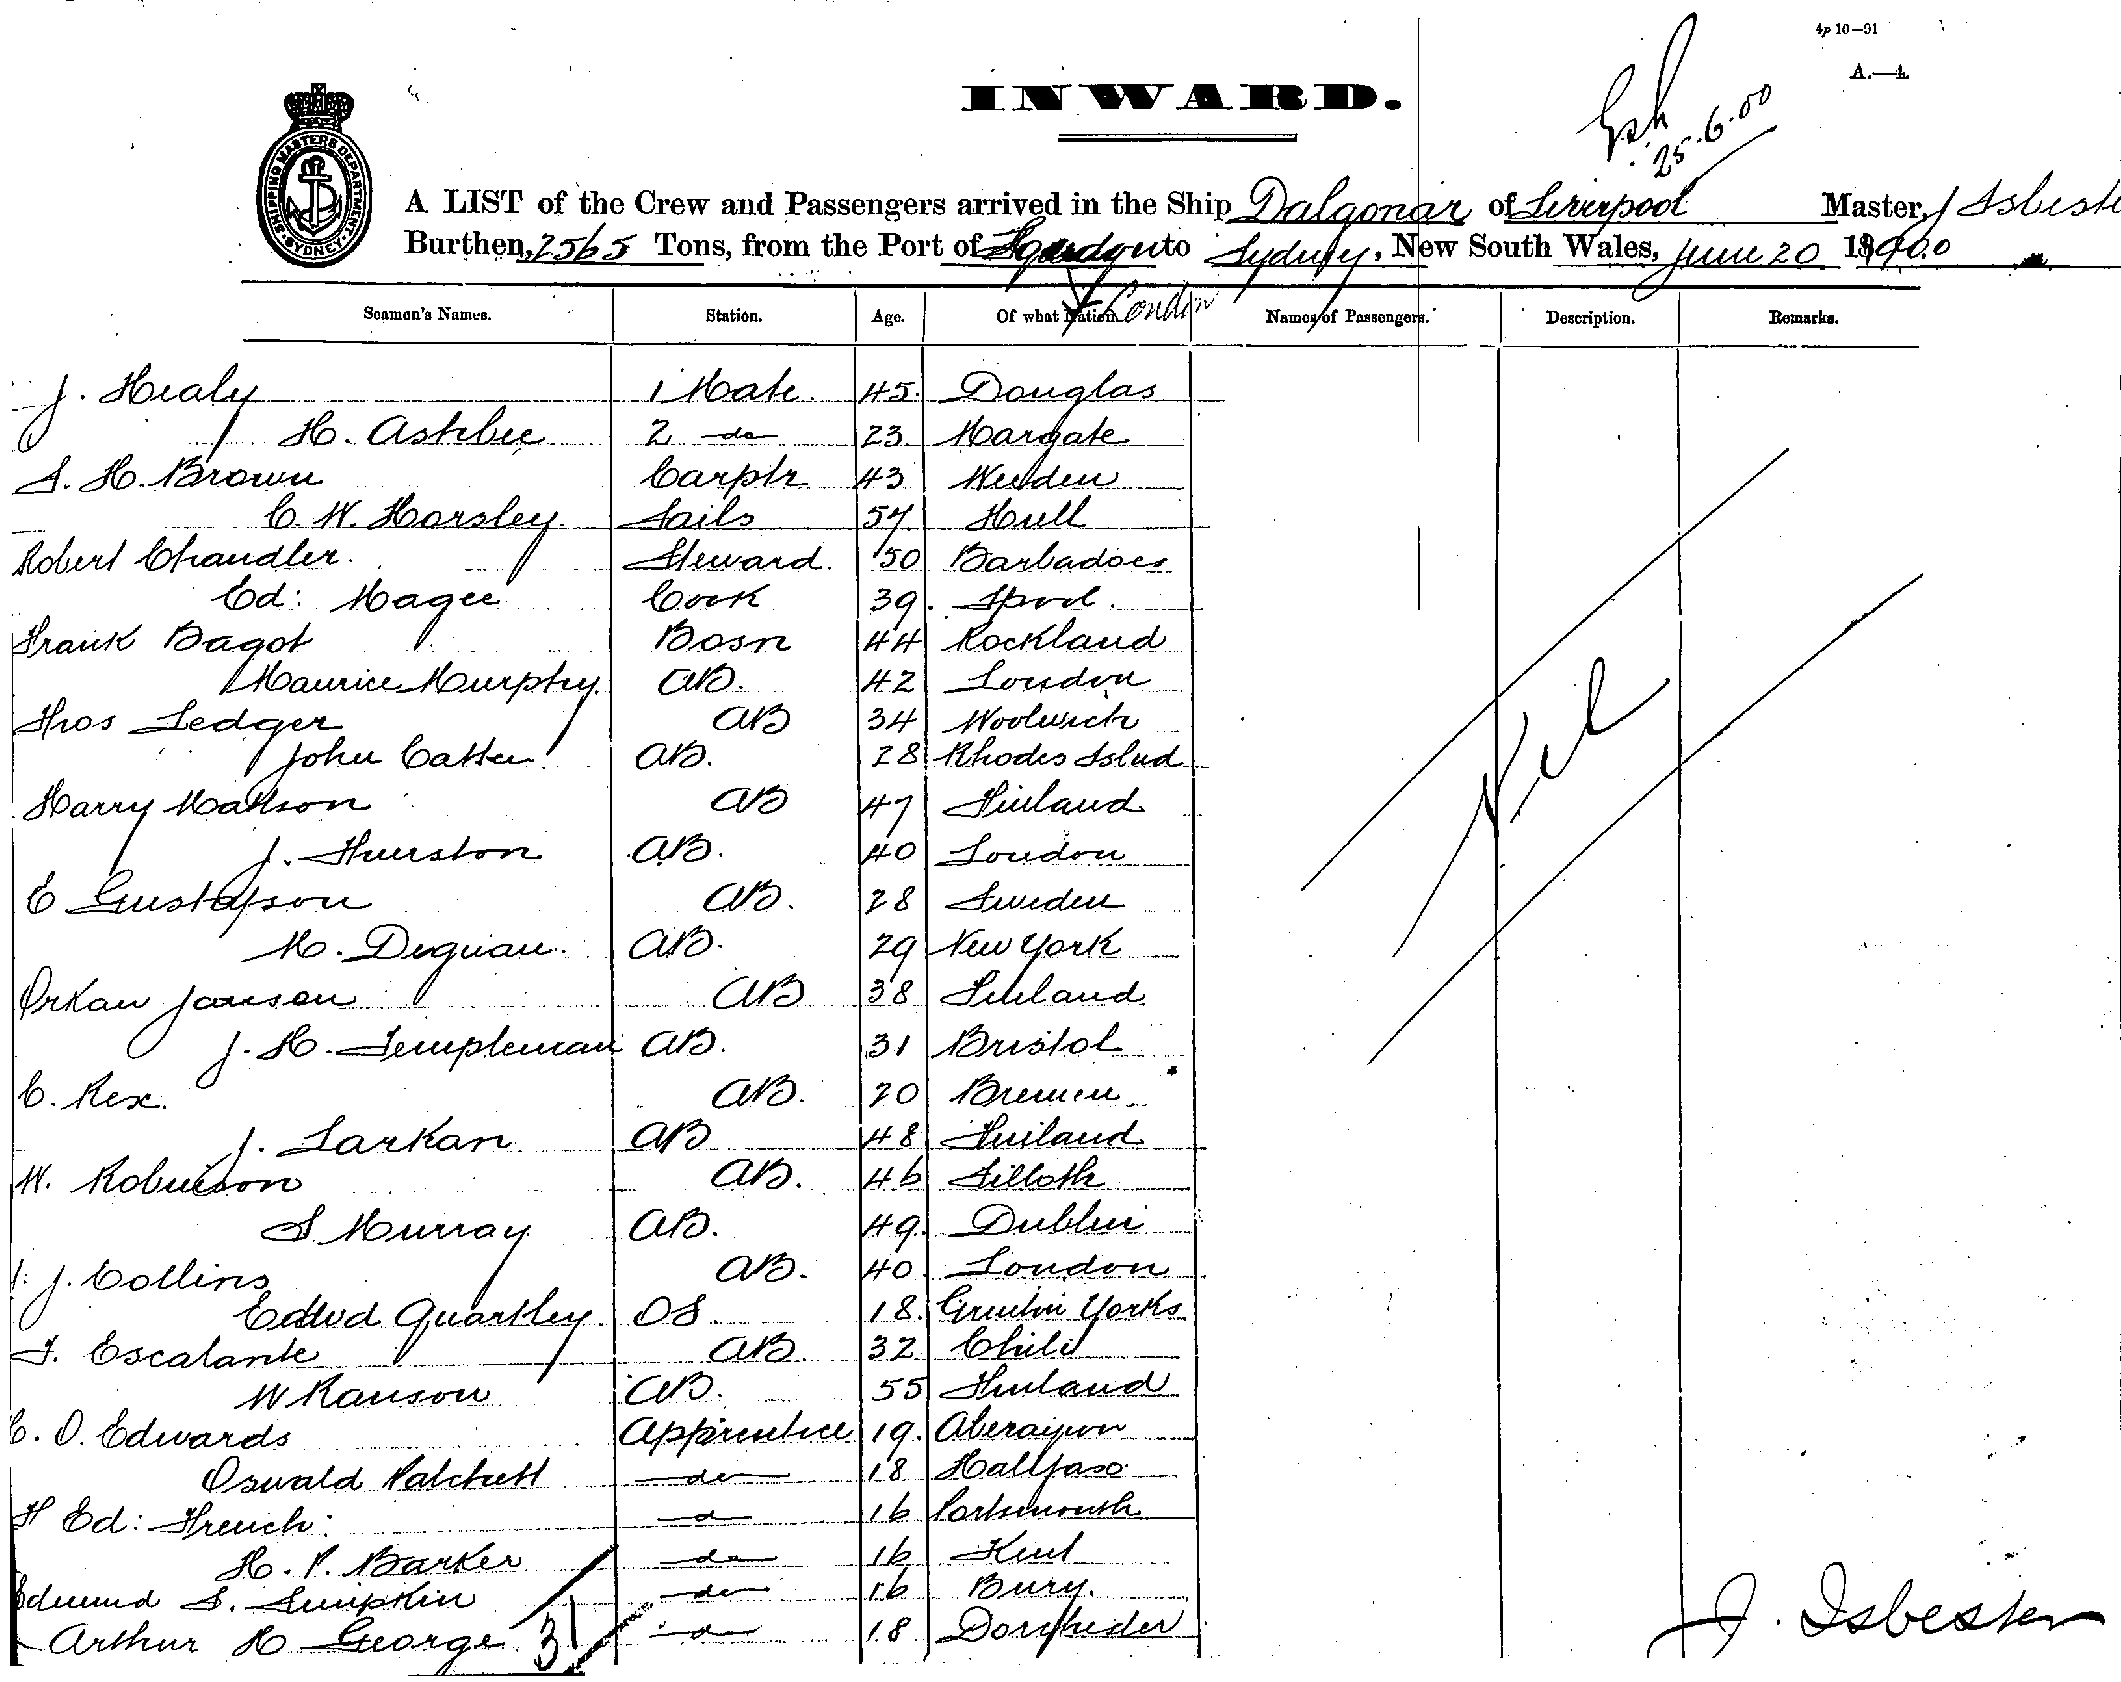 4p 10—91
A.—1.
INWARD.
25.6.00
SHIPPING MASTERS DEPARTMENT. SYDNEY.
A LIST of the Crew and Passengers arrived in the Ship Dalgonar of Liverpool Master, J Isbeste
Burthen, 2565 Tons, from the Port of to Sydney, New South Wales, June 20 1900
London
Seamen's Names. Station. Age. Of what Nation. Names of Passengers. Description. Remarks.
J. Healy 1 Mate. 45. Douglas
H. Ashbee 2 do 23. Margate
S. H. Brown Carptr 43 Weeden
C. W. Horsley. Sails 57. Hull
Robert Chandler. Steward. 50 Barbadoes
Ed: Magee Cook 39. Lpool.
Frank Bagot Bosn 44 Rockland
Maurice Murphy. AB. 42 London
Thos Ledger AB 34 Woolwich
John Catten AB. 28 Rhodes Islnd
Harry Mattson AB 47 Finland
J. Thurston AB. 40 London
E Gustafson AB. 28 Sweden
M. Deguan. AB. 29 New York
Orkan Janson AB 38 Finland
J. H. Templeman AB. 31 Bristol
C. Rex. AB. 20 Bremen
J. Larkan AB 48 Finland
W. Robinson AB. 46 Silloth
S Murray AB. 49. Dublin
J. Collins AB. 40. London
Edwd Quartley. OS 18. Yorks.
F. Escalante AB 32 Chili
W Ranson AB. 55 Finland
C. O. Edwards Apprentice 19. Aberayron
Oswald Patchett do 18 Hallfaso
H Ed: French: d 16 Portsmouth
H. P. Barker do 16 Kent
Edmund S. Simpkin do 16 Bury.
Arthur H George do 18 Dorchester
31
Nil
J. Isbester